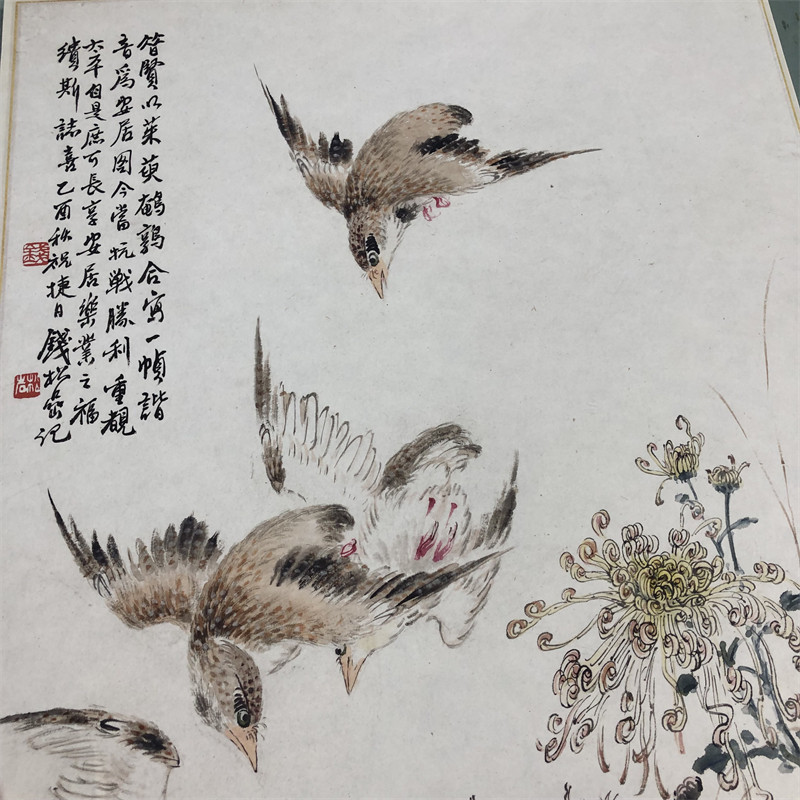 昔賢以茱萸鵪鶉合寫一幀諧
音爲安居圖今當抗戰勝利重覩
太平自是庶可長享安居樂業之福
繢斯誌喜乙酉秋祝捷日錢松嵒記